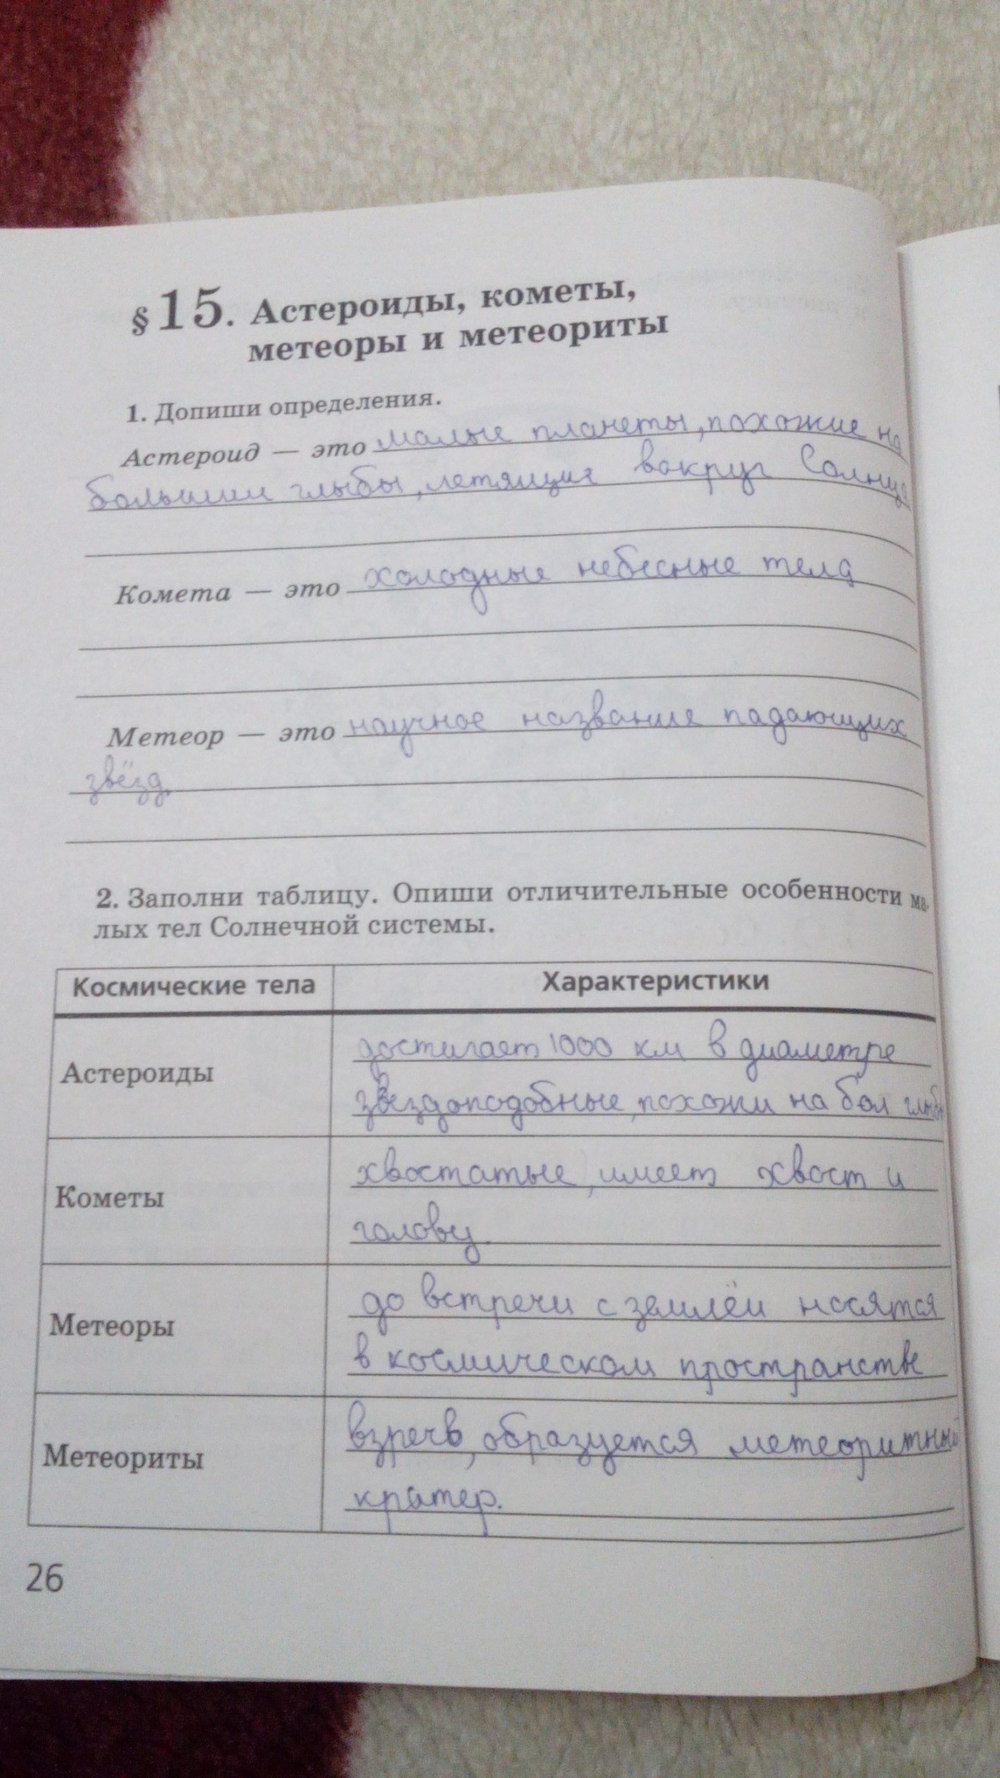 § 15. Астероиды, кометы,
метеоры и метеориты
1. Допиши определения.
Астероид — это малые планеты, похожие на
большии глыбы, летящие вокруг Солнца
Комета — это холодные небесные тела
Метеор — это научное название падающих
звёзд.
2. Заполни таблицу. Опиши отличительные особенности ма-
лых тел Солнечной системы.
Космические тела Характеристики
Астероиды
достигает 1000 км в диаметре
звездоподобные, похожи на бол глыбы
Кометы
хвостатые, имеет хвост и
голову
Метеоры
до встречи с землёй носятся
в космическом пространстве
Метеориты
взречв, образуется метеоритный
кратер.
26